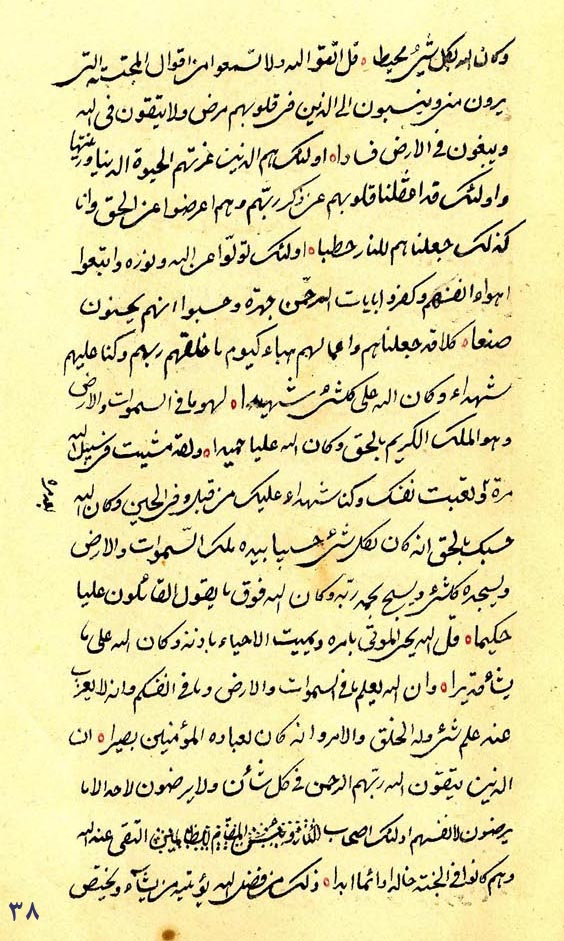 وكان الله بكل شئ محيطا ه قل اتقوا الله ولا تسمعوا من اقوال المحتجبة التى
يرون من وينسبون الى الذين فى قلوبهم مرض ولا يتقون فى الله
ويبغون فى الارض فسادا ه اولئك هم الذين غرتهم الحيوة الدنيا وزينتها
واولئك قد اغفلنا قلوبهم عن ذكر ربهم وهم اعرضوا عن الحق وانا
كذلك جعلناهم للنار حطبا ه اولئك تولوا عن الله ونوره واتبعوا
اهواء انفسهم وكفروا بايات الرحمن جهرة وحسبوا انهم يحسنون
صنعا ه كلا قد جعلناهم واعمالهم هباء كيوم ما خلقهم ربهم وكنا عليهم
شهداء وكان الله على كلشئ شهيدا ه له ما فى السموات والارض
وهو الملك الكريم بالحق وكان الله عليا حميدا ه ولقد مشيت فى سبيل الله
مرة ولعبت نفسك وكنا شهداء عليك من قبل وفى الحين وكان الله
حسبك بالحق انه كان بكل شئ حسيبا بيده ملك السموات والارض
ويسجده كلشئ ويسبح بحمد ربه وكان الله فوق ما يقول القائلون عليا
حكيما ه قل الله يحى الموتى بامره ويميت الاحياء باذنه وكان الله على ما
يشاء قديرا ه وان الله يعلم ما فى السموات والارض وما فى انفسكم وانه لا يعزب
عنه علم شئ وله الخلق والامر وانه كان لعباده المؤمنين بصيرا ه ان
الذين يتقون الله ربهم الرحمن فى كل شأن ولا يرضون لاحد الا ما
يرضون لانفسهم اولئك اصحاب التقى عند الله
وهم كانوا فى الجنة خالدا دائما ابدا ه ذلك من فضل الله يؤتيه من يشاء ويختص
٣٨